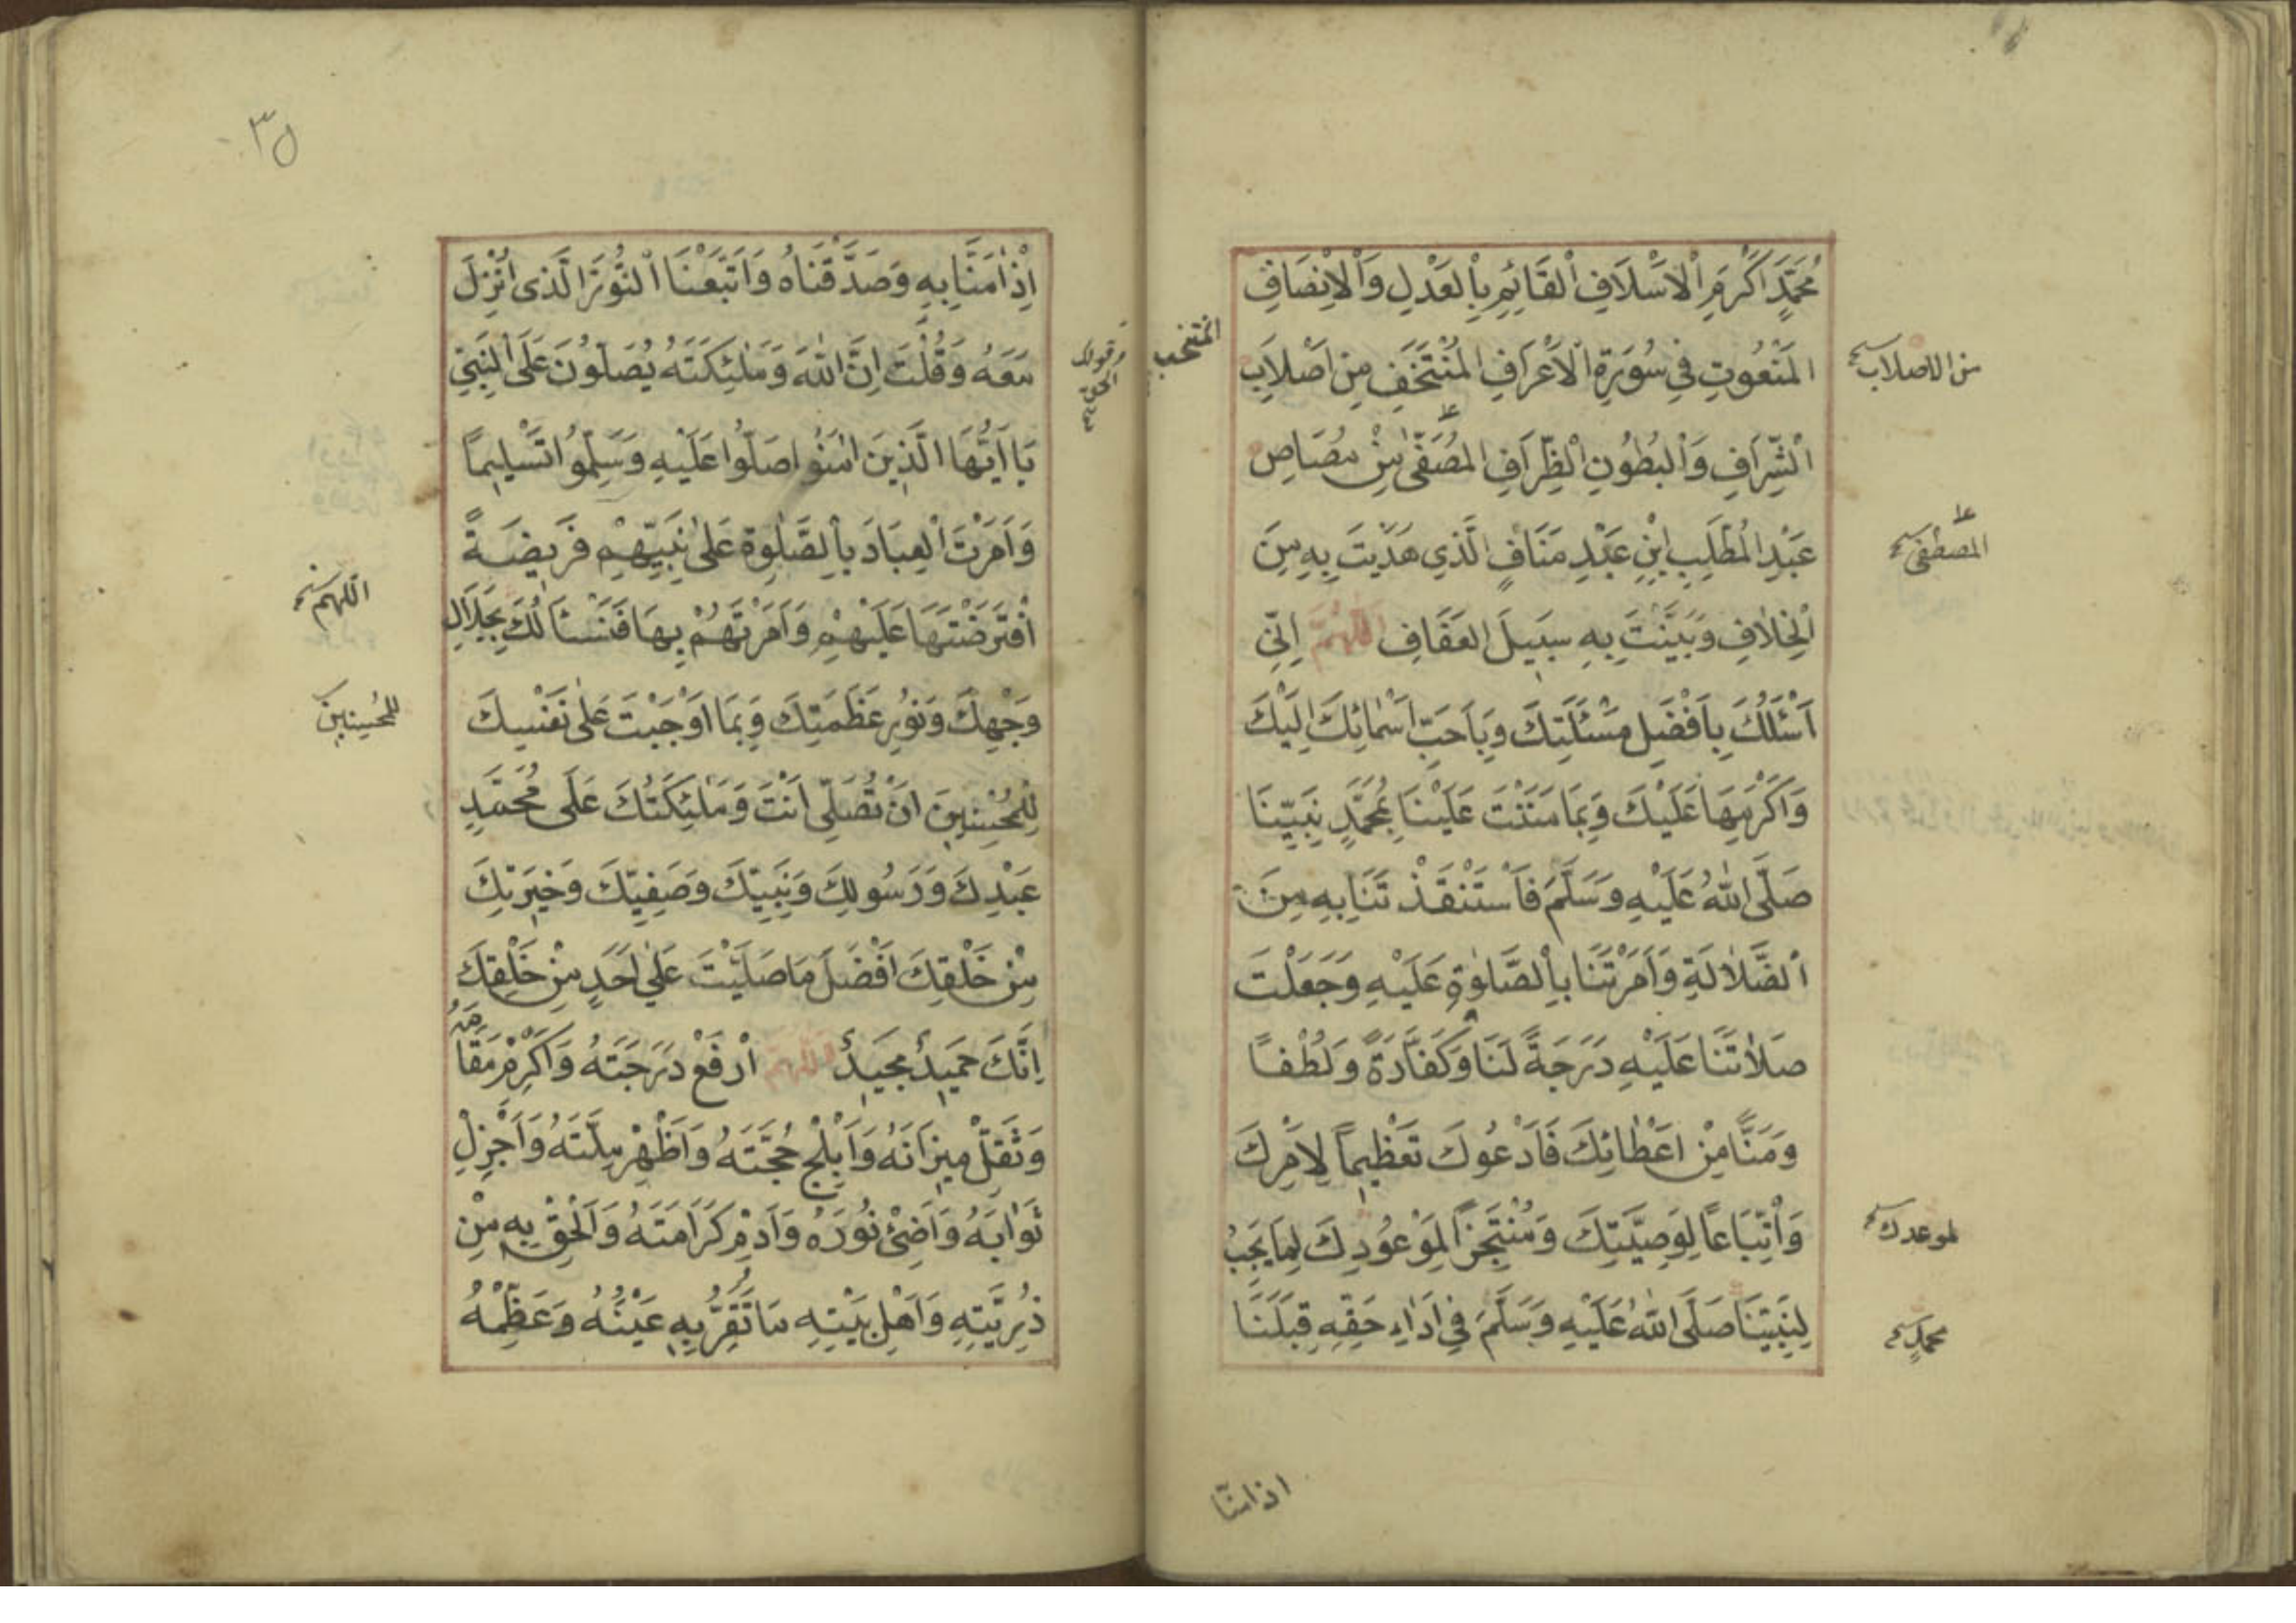 مُحَمَّدٍ اَكْرَمِ الْاَسْلَافِ الْقَائِمِ بِالْعَدْلِ وَالْاِنْصَافِ
الْمَنْعُوتِ فِي سُورَةِ الْاَعْرَافِ الْمُنْتَخَفِ مِنْ اَصْلَابِ
الشِّرَافِ وَالْبُطُونِ الظِّرَافِ الْمُصَفّٰى مِنْ مُصَاصِ
عَبْدِ الْمُطَّلِبِ ابْنِ عَبْدِ مَنَافٍ الَّذِي هَدَيْتَ بِهِ مِنَ
الْخِلَافِ وَبَيَّنْتَ بِهِ سَبِيلَ الْعَفَافِ اَللّٰهُمَّ اِنِّي
اَسْئَلُكَ بِاَفْضَلِ مَسْئَلَتِكَ وَبِاَحَبِّ اَسْمَائِكَ اِلَيْكَ
وَاَكْرَمِهَا عَلَيْكَ وَبِمَا مَنَنْتَ عَلَيْنَا بِمُحَمَّدٍ نَبِيِّنَا
صَلَّى اللّٰهُ عَلَيْهِ وَسَلَّمَ فَاسْتَنْقَذْتَنَا بِهِ مِنَ
الضَّلَالَةِ وَاَمَرْتَنَا بِالصَّلٰوةِ عَلَيْهِ وَجَعَلْتَ
صَلَاتَنَا عَلَيْهِ دَرَجَةً لَنَا وَكَفَّارَةً وَلُطْفًا
وَمَنًّا مِنْ اِعْطَائِكَ فَاَدْعُوكَ تَعْظِيمًا لِاَمْرِكَ
وَاتِّبَاعًا لِوَصِيَّتِكَ وَمُنْتَجِزًا لِمَوْعُودِكَ لِمَا يَجِبُ
لِنَبِيِّنَا صَلَّى اللّٰهُ عَلَيْهِ وَسَلَّمَ فِي اَدَاءِ حَقِّهِ قِبَلَنَا
المنتخب
من الاصلاب
المصطفى
لموعدك
محمدٍ
اذ امنّا
٣٥
اِذْ اٰمَنَّا بِهِ وَصَدَّقْنَاهُ وَاتَّبَعْنَا النُّورَ الَّذِى اُنْزِلَ
مَعَهُ وَقُلْتَ اِنَّ اللّٰهَ وَمَلٰئِكَتَهُ يُصَلُّونَ عَلَى النَّبِيِّ
يَا اَيُّهَا الَّذِينَ اٰمَنُوا صَلُّوا عَلَيْهِ وَسَلِّمُوا تَسْلِيمًا
وَاَمَرْتَ الْعِبَادَ بِالصَّلٰوةِ عَلٰى نَبِيِّهِمْ فَرِيضَةً
افْتَرَضْتَهَا عَلَيْهِمْ وَاَمَرْتَهُمْ بِهَا فَنَسْئَالُكَ بِجَلَالِ
وَجْهِكَ وَنُورِ عَظَمَتِكَ وَبِمَا اَوْجَبْتَ عَلٰى نَفْسِكَ
لِلْمُحْسِنِينَ اَنْ تُصَلِّيَ اَنْتَ وَمَلٰئِكَتُكَ عَلَى مُحَمَّدٍ
عَبْدِكَ وَرَسُولِكَ وَنَبِيِّكَ وَصَفِيِّكَ وَخِيَرَتِكَ
مِنْ خَلْقِكَ اَفْضَلَ مَا صَلَّيْتَ عَلٰى اَحَدٍ مِنْ خَلْقِكَ
اِنَّكَ حَمِيدٌ مَجِيدٌ اَللّٰهُمَّ ارْفَعْ دَرَجَتَهُ وَاَكْرِمْ مَقَامَهُ
وَثَقِّلْ مِيزَانَهُ وَاَبْلِجْ حُجَّتَهُ وَاَظْهِرْ مِلَّتَهُ وَاَجْزِلْ
ثَوَابَهُ وَاَضِئْ نُورَهُ وَاَدِمْ كَرَامَتَهُ وَاَلْحِقْ بِهِ مِنْ
ذُرِّيَّتِهِ وَاَهْلِ بَيْتِهِ مَا تَقَرُّ بِهِ عَيْنُهُ وَعَظِّمْهُ
وقولك الحق
اللهم
للمحسنين